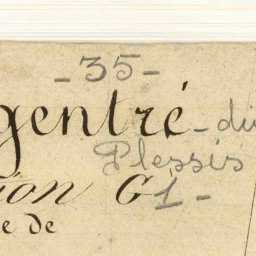 - 35 -
gentré - du
Plessis
ion G1 -
e de